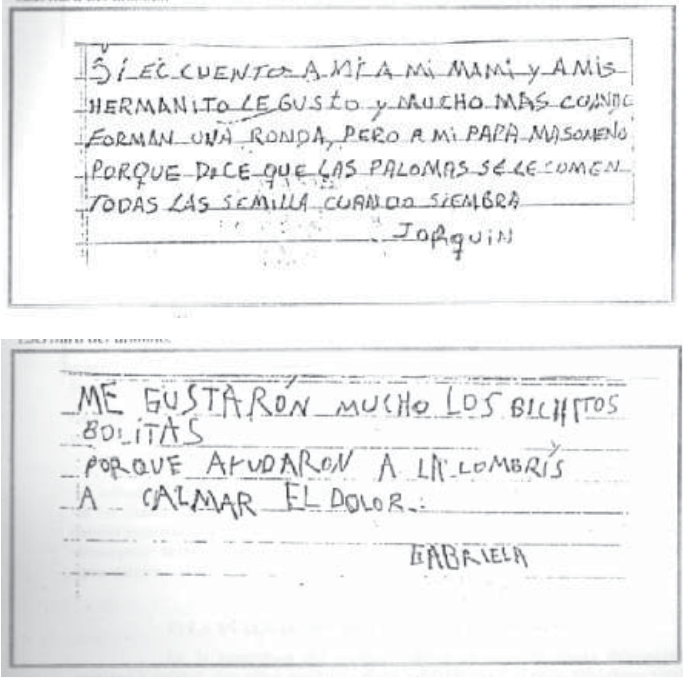 SÍ EL CUENTO A MI A MI MAMI y A MIS
HERMANITO LE GUSTO y MUCHO MAS CUANDO
FORMAN UNA RONDA, PERO A MI PAPA MASOMENO
PORQUE DICE QUE LAS PALOMAS SE LE COMEN
TODAS LAS SEMILLA CUANDO SIEMBRA
JOAQUIN
ME GUSTARÓN MUCHO LOS BICHITOS
BOLITAS
PORQUE AYUDARON A LA LOMBRÍS
A CALMAR EL DOLOR.
GABRIELA